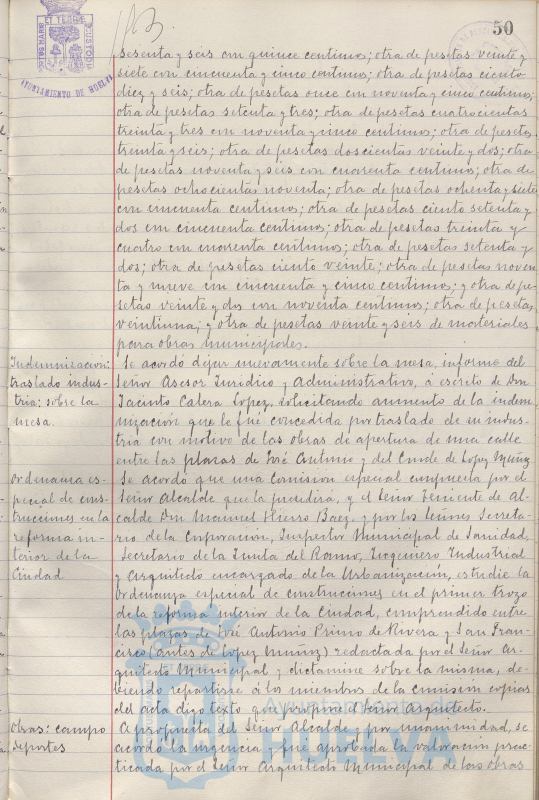 50
AYUNTAMIENTO DE HUELVA
sesenta y seis con quince centimos; otra de pesetas veinte y
siete con cincuenta y cinco centimos; otra de pesetas ciento
diez y seis; otra de pesetas once con noventa y cinco centimos;
otra de pesetas setenta y tres; otra de pesetas cuatrocientas
treinta y tres con noventa y cinco centimos; otra de pesetas
treinta y seis; otra de pesetas doscientas veinte y dos; otra
de pesetas noventa y seis con cuarenta centimos; otra de
pesetas ochocientas noventa; otra de pesetas ochenta y siete
con cincuenta centimos; otra de pesetas ciento setenta y
dos con cincuenta centimos; otra de pesetas treinta y
cuatro con cuarenta centimos; otra de pesetas setenta y
dos; otra de pesetas ciento veinte; otra de pesetas noven
ta y nueve con cincuenta y cinco centimos; y otra de pe-
setas veinte y dos con noventa centimos; otra de pesetas
veintiuna; y otra de pesetas veinte y seis de materiales
para obras municipales.
Indemnización:
traslado indus-
tria: sobre la
mesa.
Se acordó dejar nuevamente sobre la mesa, informe del
Señor Asesor Juridico y Administrativo, a escrito de Don
Jacinto Calera Lopez, solicitando aumento de la indem
nización que le fué concedida por traslado de su indus-
tria con motivo de las obras de apertura de una calle
entre las plazas de José Antonio y del Conde de Lopez Muñoz
Ordenanza es-
pecial de cons-
trucciones en la
reforma in-
terior de la
Ciudad
Se acordó que una Comision especial compuesta por el
Señor Alcalde que la presidirá, y el Señor Teniente de Al-
calde Don Manuel Hierro Baez, y por los Señores Secreta-
rio de la Corporación, Inspector Municipal de Sanidad,
Secretario de la Junta del Paro, Ingeniero Industrial
y Arquitecto encargado de la Urbanización, estudie la
Ordenanza especial de construcciones en el primer trozo
de la reforma interior de la Ciudad, comprendido entre
las plazas de José Antonio Primo de Rivera y San Fran-
cisco (antes de Lopez Muñoz) redactada por el Señor Ar-
quitecto Municipal y dictamine sobre la misma, de-
biendo repartirse a los miembros de la comisión copias
del acta digo texto que presente el Señor Arquitecto.
Obras: campo
deportes
A propuesta del Señor Alcalde y por unanimidad, se
acordó la urgencia y fué aprobada la valoración prac-
ticada por el Señor Arquitecto Municipal de las obras
Ayuntamiento de
HUELVA